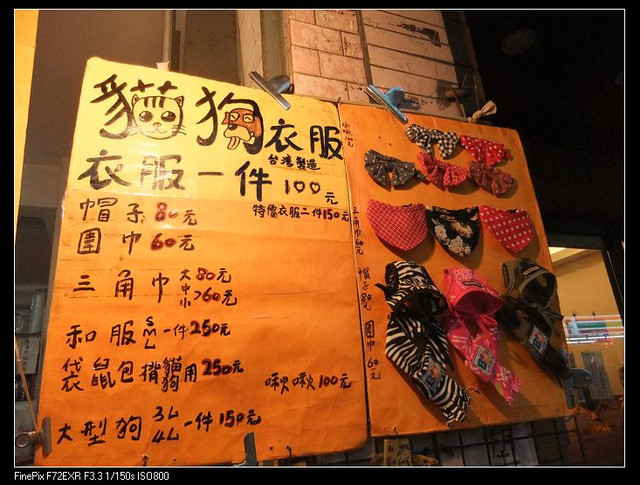 貓狗衣服
台灣製造
衣服一件100元
特價衣服二件150元
帽子80元
圍巾60元
三角巾 大中 80元
小 >60元
和服 S M L 一件250元
袋鼠包 揹貓狗用 250元
啾啾100元
大型狗 3L 4L 一件150元
三角巾60元
帽子80元
圍巾60元
FinePix F72EXR F3.3 1/150s ISO800